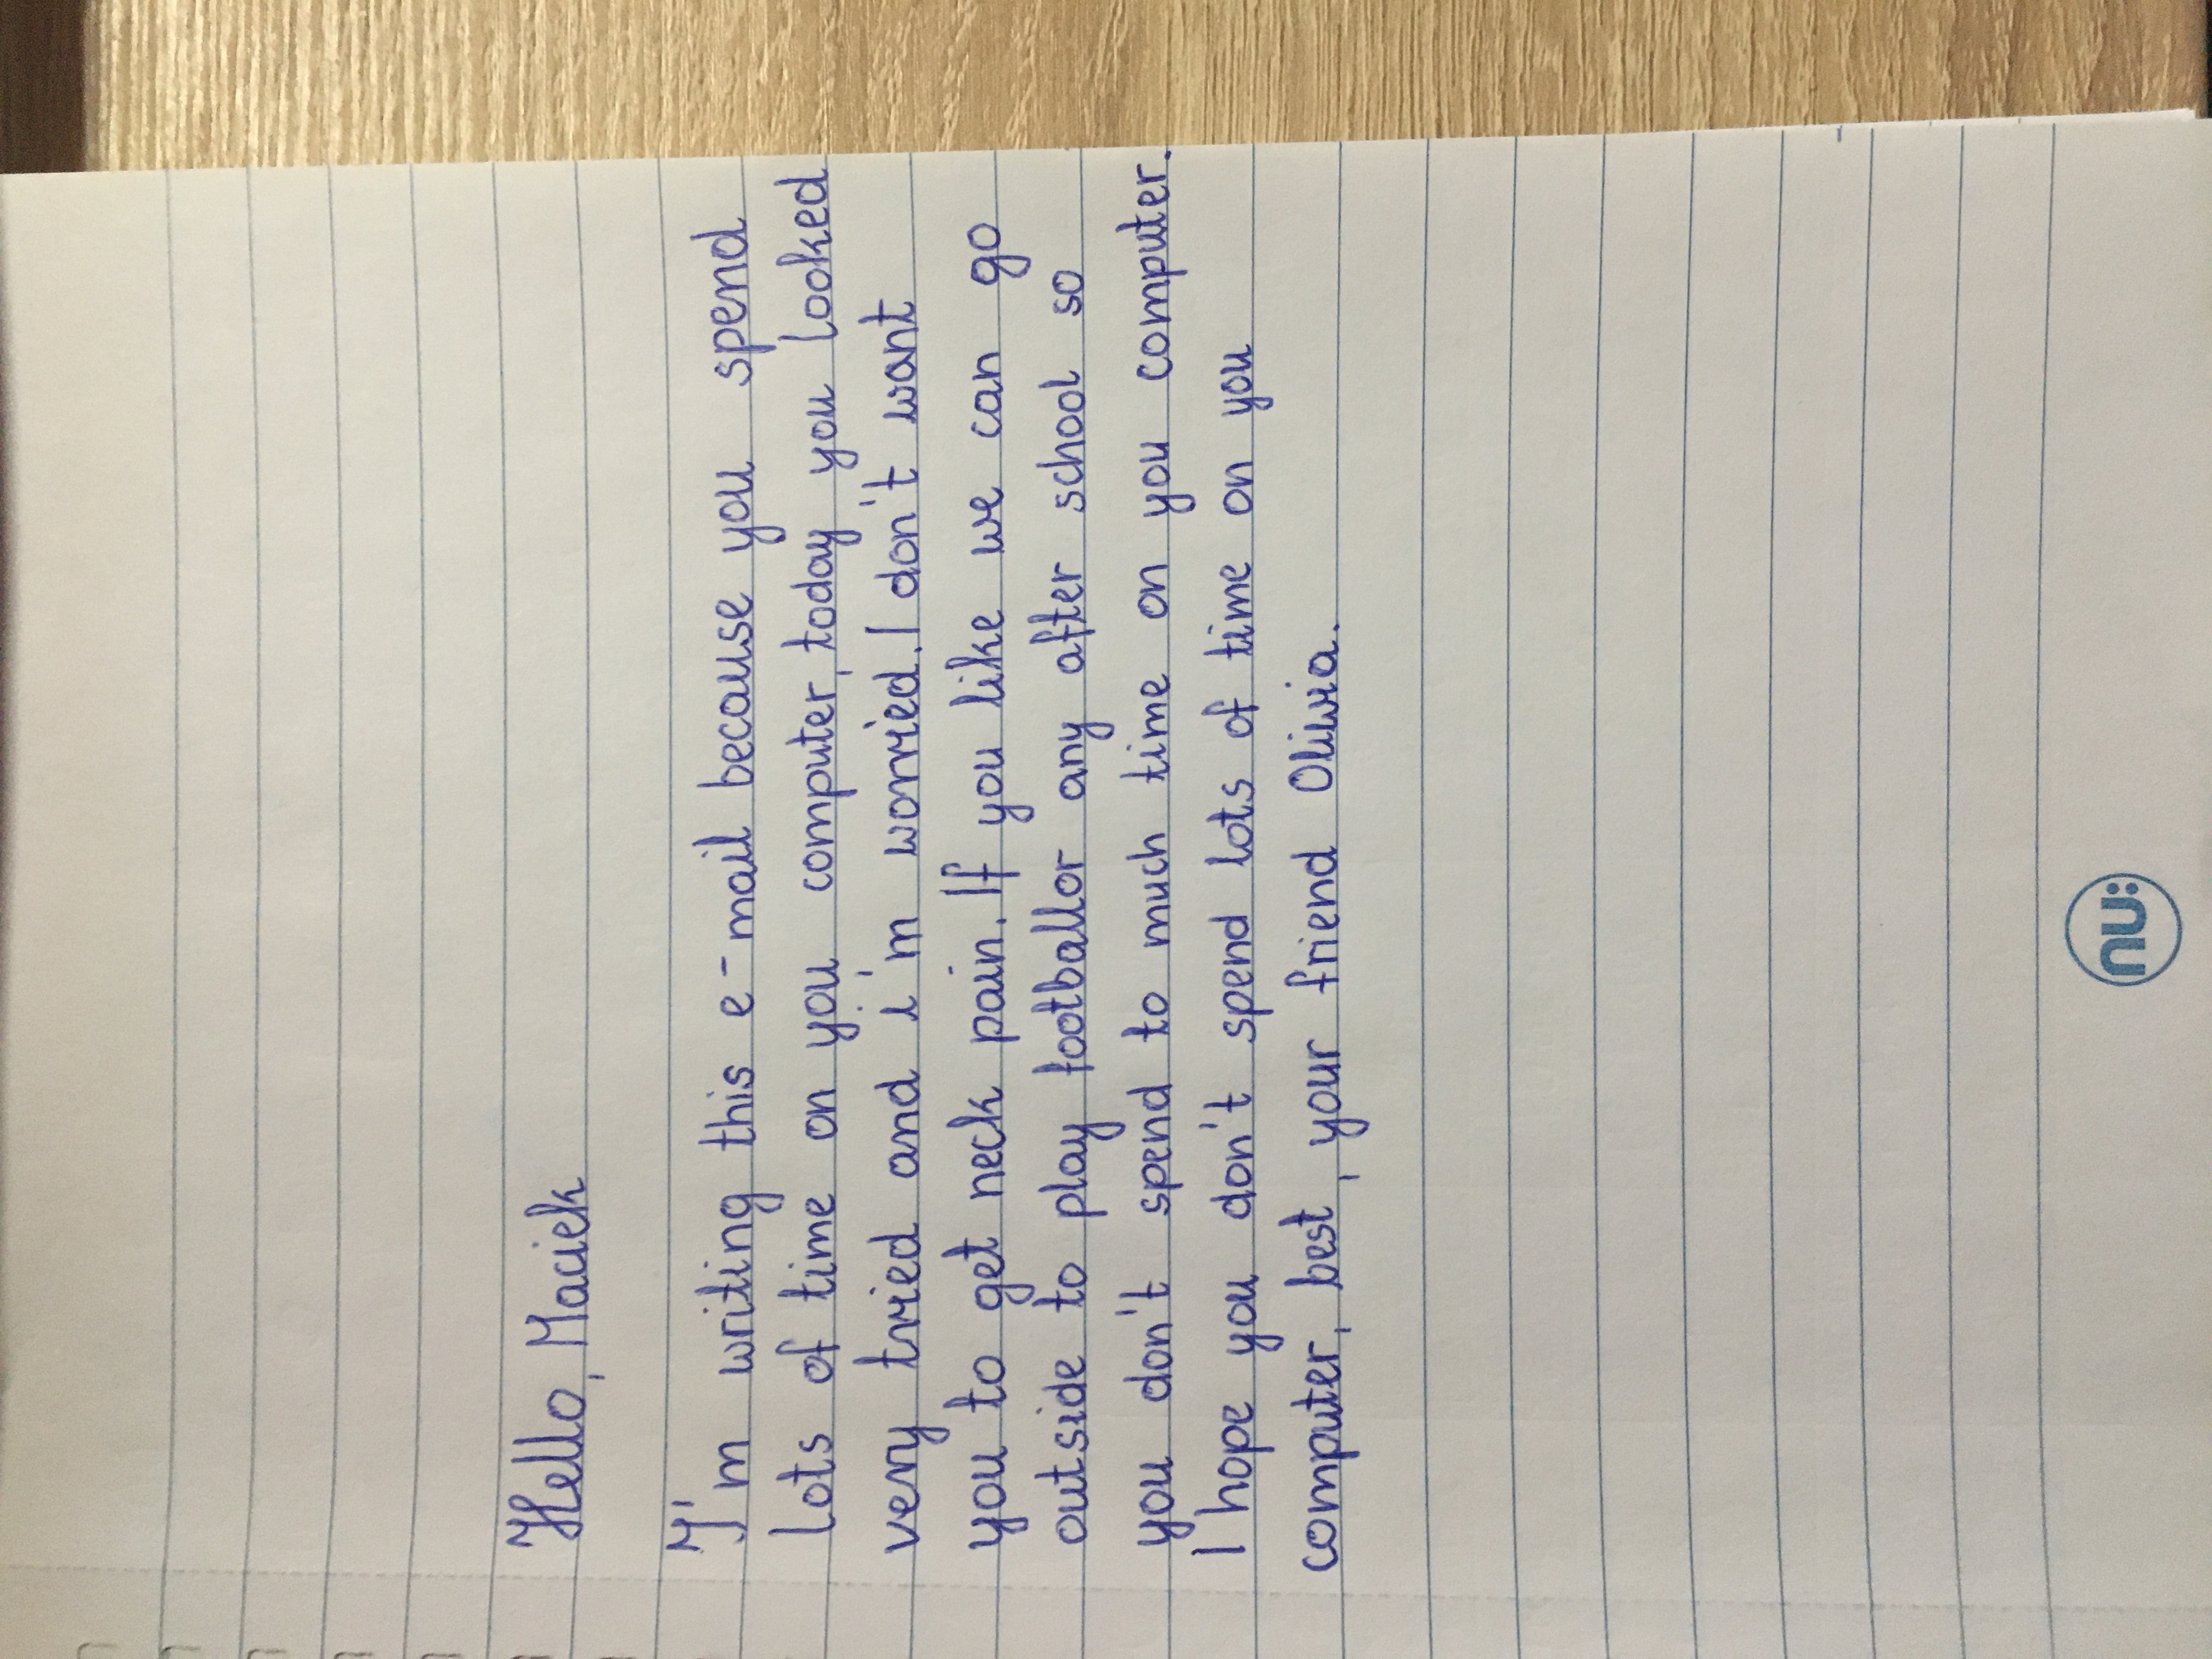 Hello, Maciek
I'm writing this e-mail because you spend
lots of time on you computer, today you looked
very tried and i'm worried. I don't want
you to get neck pain. If you like we can go
outside to play footballor any after school so
you don't spend to much time on you computer.
I hope you don't spend lots of time on you
computer, best, your friend Oliwia.
nu: